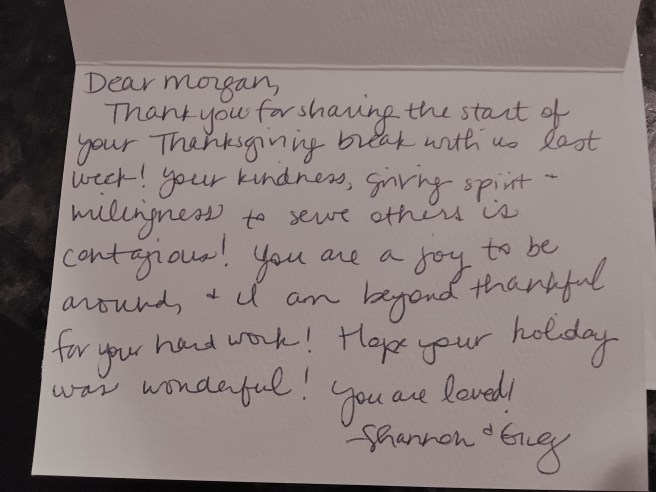 Dear Morgan,
Thank you for sharing the start of
your Thanksgiving break with us last
week! Your kindness, giving spirit -
willingness to serve others is
contagious! You are a joy to be
around, & I am beyond thankful
for your hard work! Hope your holiday
was wonderful! You are loved!
-Shannon & Greg